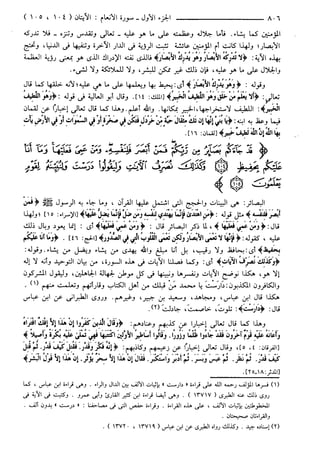 ٨٠٦ الجزء الأول ـ سورة الأنعام: الآيتان (١٠٤، ١٠٥)
المؤمنين كما يشاء. فأما جلاله وعظمته على ما هو عليه ـ تعالى وتقدس وتنزه ـ فلا تدركه
الأبصار؛ ولهذا كانت أم المؤمنين عائشة تثبت الرؤية في الدار الآخرة وتنفيها في الدنيا، وتحتج
بهذه الآية: ﴿لا تُدْرِكُهُ الأَبْصَارُ وَهُوَ يُدْرِكُ الأَبْصَارَ﴾ فالذي نفته الإدراك الذي هو بمعنى رؤية العظمة
والجلال على ما هو عليه، فإن ذلك غير ممكن للبشر، ولا للملائكة ولا لشيء.
وقوله: ﴿وَهُوَ يُدْرِكُ الأَبْصَارَ﴾ أي: يحيط بها ويعلمها على ما هي عليه؛ لأنه خلقها كما قال
تعالى: ﴿أَلا يَعْلَمُ مَنْ خَلَقَ وَهُوَ اللَّطِيفُ الْخَبِيرُ﴾ (الملك: ١٤). وقال أبو العالية في قوله: ﴿وَهُوَ اللَّطِيفُ
الْخَبِيرُ﴾: اللطيف لاستخراجها، الخبير بمكانها. والله أعلم. وهذا كما قال تعالى إخبارًا عن لقمان
فيما وعظ به ابنه: ﴿يَا بُنَيَّ إِنَّهَا إِن تَكُ مِثْقَالَ حَبَّةٍ مِّنْ خَرْدَلٍ فَتَكُن فِي صَخْرَةٍ أَوْ فِي السَّمَوَاتِ أَوْ فِي الأَرْضِ يَأْتِ
بِهَا اللَّهُ إِنَّ اللَّهَ لَطِيفٌ خَبِيرٌ﴾ (لقمان: ١٦).
قَدْ جَاءَكُم بَصَائِرُ مِن رَّبِّكُمْ فَمَنْ أَبْصَرَ فَلِنَفْسِهِ وَمَنْ عَمِيَ فَعَلَيْهَا وَمَا أَنَا
عَلَيْكُم بِحَفِيظٍ (١٠٤) وَكَذَلِكَ نُصَرِّفُ الْآيَاتِ وَلِيَقُولُوا دَرَسْتَ وَلِنُبَيِّنَهُ لِقَوْمٍ
يَعْلَمُونَ (١٠٥)
البصائر: هي البينات والحجج التي اشتمل عليها القرآن، وما جاء به الرسول ﷺ ﴿فَمَنْ
أَبْصَرَ فَلِنَفْسِهِ﴾ مثل قوله: ﴿مَنِ اهْتَدَىٰ فَإِنَّمَا يَهْتَدِي لِنَفْسِهِ وَمَن ضَلَّ فَإِنَّمَا يَضِلُّ عَلَيْهَا﴾ (الإسراء: ١٥) ولهذا
قال: ﴿وَمَنْ عَمِيَ فَعَلَيْهَا﴾، لما ذكر البصائر قال: ﴿وَمَنْ عَمِيَ فَعَلَيْهَا﴾ أي: إنما يعود وبال ذلك
عليه، كقوله: ﴿فَإِنَّهَا لا تَعْمَى الأَبْصَارُ وَلَكِن تَعْمَى الْقُلُوبُ الَّتِي فِي الصُّدُورِ﴾ (الحج: ٤٦). ﴿وَمَا أَنَا عَلَيْكُم
بِحَفِيظٍ﴾ أي: بحافظ ولا رقيب، بل أنا مبلغ والله يهدي من يشاء ويضل من يشاء. وقوله:
﴿وَكَذَلِكَ نُصَرِّفُ الآيَاتِ﴾ أي: وكما فصلنا الآيات في هذه السورة، من بيان التوحيد وأنه لا إله
إلا هو، هكذا نوضح الآيات ونفسرها ونبينها في كل موطن لجهالة الجاهلين، وليقول المشركون
والكافرون المكذبون: دارست يا محمد مَنْ قبلك من أهل الكتاب وقارأتهم وتعلمت منهم (١).
هكذا قال ابن عباس، ومجاهد، وسعيد بن جبير، وغيرهم. وروى الطبراني عن ابن عباس
قال: ﴿دَارَسْتَ﴾: تلوت، خاصمت، جادلت (٢).
وهذا كما قال تعالى إخبارًا عن كذبهم وعنادهم: ﴿وَقَالَ الَّذِينَ كَفَرُوا إِنْ هَذَا إِلاَّ إِفْكٌ افْتَرَاهُ
وَأَعَانَهُ عَلَيْهِ قَوْمٌ آخَرُونَ فَقَدْ جَاءُوا ظُلْمًا وَزُورًا. وَقَالُوا أَسَاطِيرُ الأَوَّلِينَ اكْتَتَبَهَا فَهِيَ تُمْلَى عَلَيْهِ بُكْرَةً وَأَصِيلاً﴾
(الفرقان: ٤، ٥)، وقال تعالى إخبارًا عن زعيمهم وكاذبهم: ﴿إِنَّهُ فَكَّرَ وَقَدَّرَ. فَقُتِلَ كَيْفَ قَدَّرَ. ثُمَّ قُتِلَ
كَيْفَ قَدَّرَ. ثُمَّ نَظَرَ. ثُمَّ عَبَسَ وَبَسَرَ. ثُمَّ أَدْبَرَ وَاسْتَكْبَرَ. فَقَالَ إِنْ هَذَا إِلاَّ سِحْرٌ يُؤْثَرُ. إِنْ هَذَا إِلاَّ قَوْلُ الْبَشَرِ﴾
(المدثر: ١٨ـ٢٥).
(١) فسرها المؤلف رحمه الله على قراءة «دارست» بإثبات الألف بين الدال والراء. وهي قراءة ابن عباس، كما
روى ذلك عنه الطبري (١٣٧١٧). وهي أيضا قراءة ابن كثير القارئ وأبي عمرو. وكتبت في الآية في
المخطوطتين بإثبات الألف، على هذه القراءة. وقراءة حفص التي في مصاحفنا: «درست» بدون ألف.
والقراءتان صحيحتان.
(٢) إسناده جيد. وكذلك رواه الطبري عن ابن عباس (١٣٧١٩، ١٣٧٢٠).